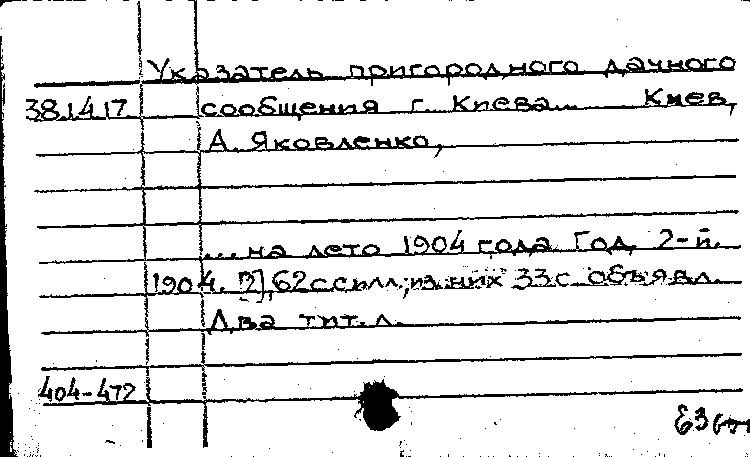 Указатель пригородного дачного
38.1417 сообщения г. Киева... Киев,
А. Яковленко,
...на лето 1904 года. Год 2-й.
1904. 62 с с илл., из них 33 с. объявл.
Два тит. л.
404-472